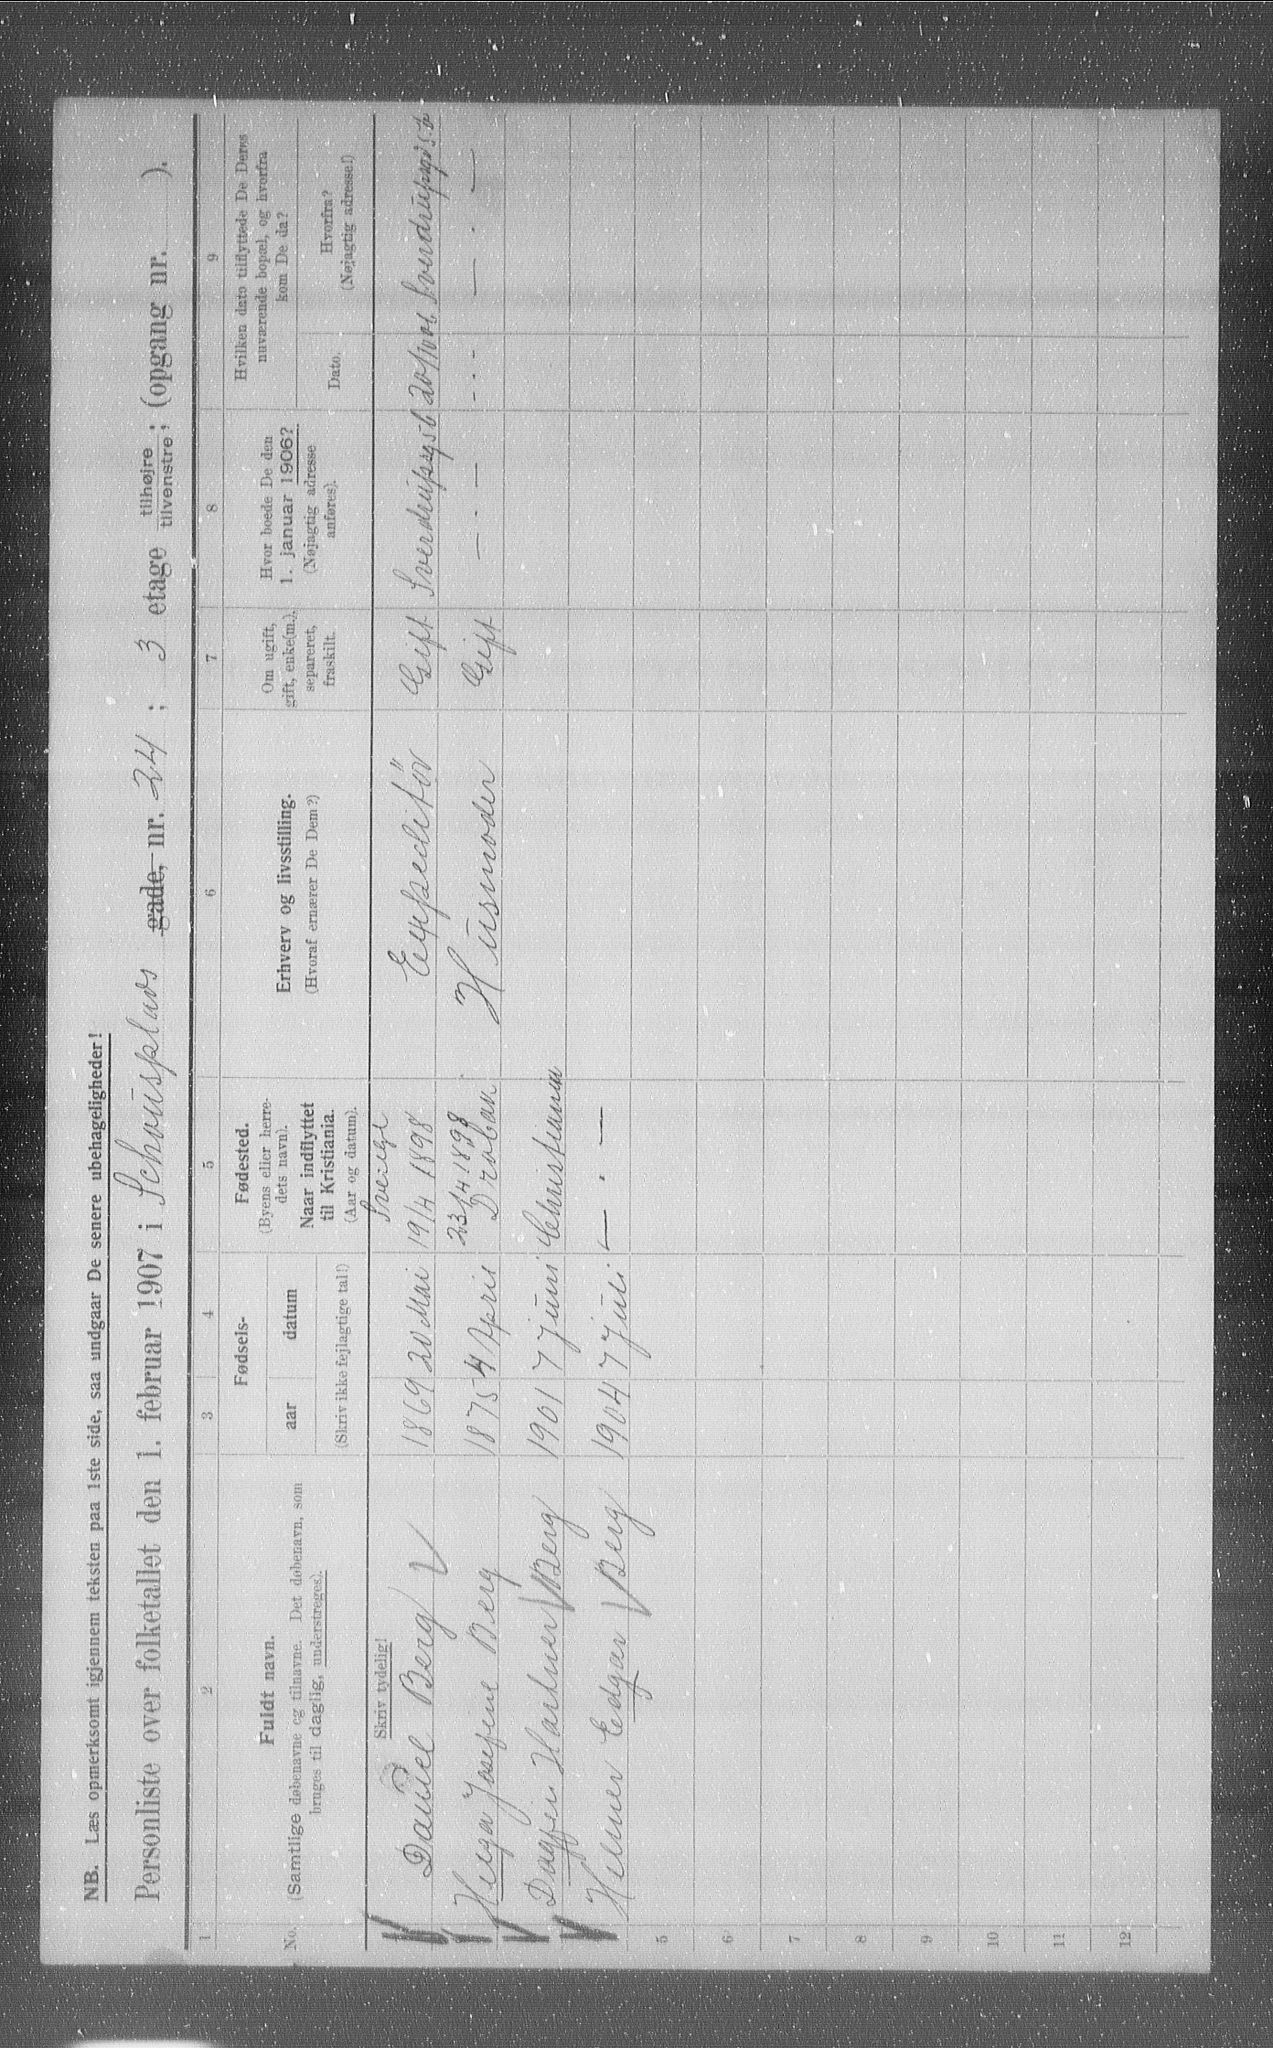 NB. Læs opmerksomt igjennem teksten paa 1ste side, saa undgaar De senere ubehageligheder!
Personliste over folketallet den 1. februar 1907 i Schousplads gade, nr. 24 ; 3 etage tilhøjre tilvenstre ; (opgang nr. ).
1 2 3 4 5 6 7 8 9
No.
Fuldt navn.
(Samtlige døbenavne og tilnavne. Det døbenavn, som
bruges til daglig, understreges).
Fødsels-
aar datum
(Skriv ikke fejlagtige tal!)
Fødested.
(Byens eller herre-
dets navn).
Naar indflyttet
til Kristiania.
(Aar og datum).
Erhverv og livsstilling.
(Hvoraf ernærer De Dem?)
Om ugift,
gift, enke(m.),
separeret,
fraskilt.
Hvor boede De den
1. januar 1906?
(Nøjagtig adresse
anføres).
Hvilken dato tilflyttede De Deres
nuværende bopæl, og hvorfra
kom De da?
Dato.
Hvorfra?
(Nøjagtig adresse!)
Skriv tydelig!
Sverige
Daniel Berg 1869 20 Mai 19/4 1898 Expeditör Gift Sverdrupsgt
23/4 1898
Helga Josefine Berg 1875 4 April Drøbak Husmoder Gift — · — - - - — · —
Dagfin Hartner Berg 1901 7 Juni Christiania
Helmer Edgar Berg 1904 7 Juli — · —
5
6
7
8
9
10
11
12